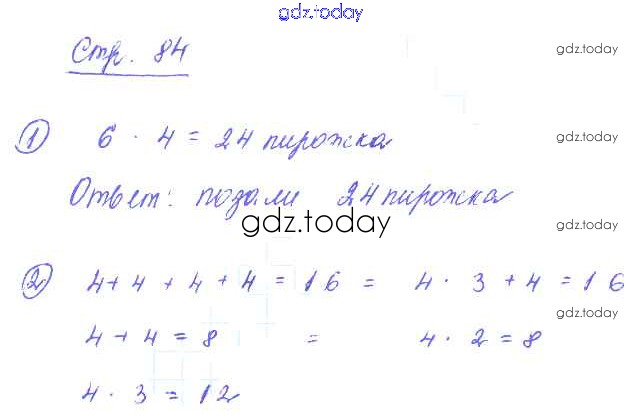 gdz.today
Стр. 84
gdz.today
① 6 · 4 = 24 пирожка
gdz.today
Ответ: подали 24 пирожка
gdz.today
gdz.today
② 4 + 4 + 4 + 4 = 16 = 4 · 3 + 4 = 16
gdz.today
4 + 4 = 8 = 4 · 2 = 8
4 · 3 = 12
gdz.today